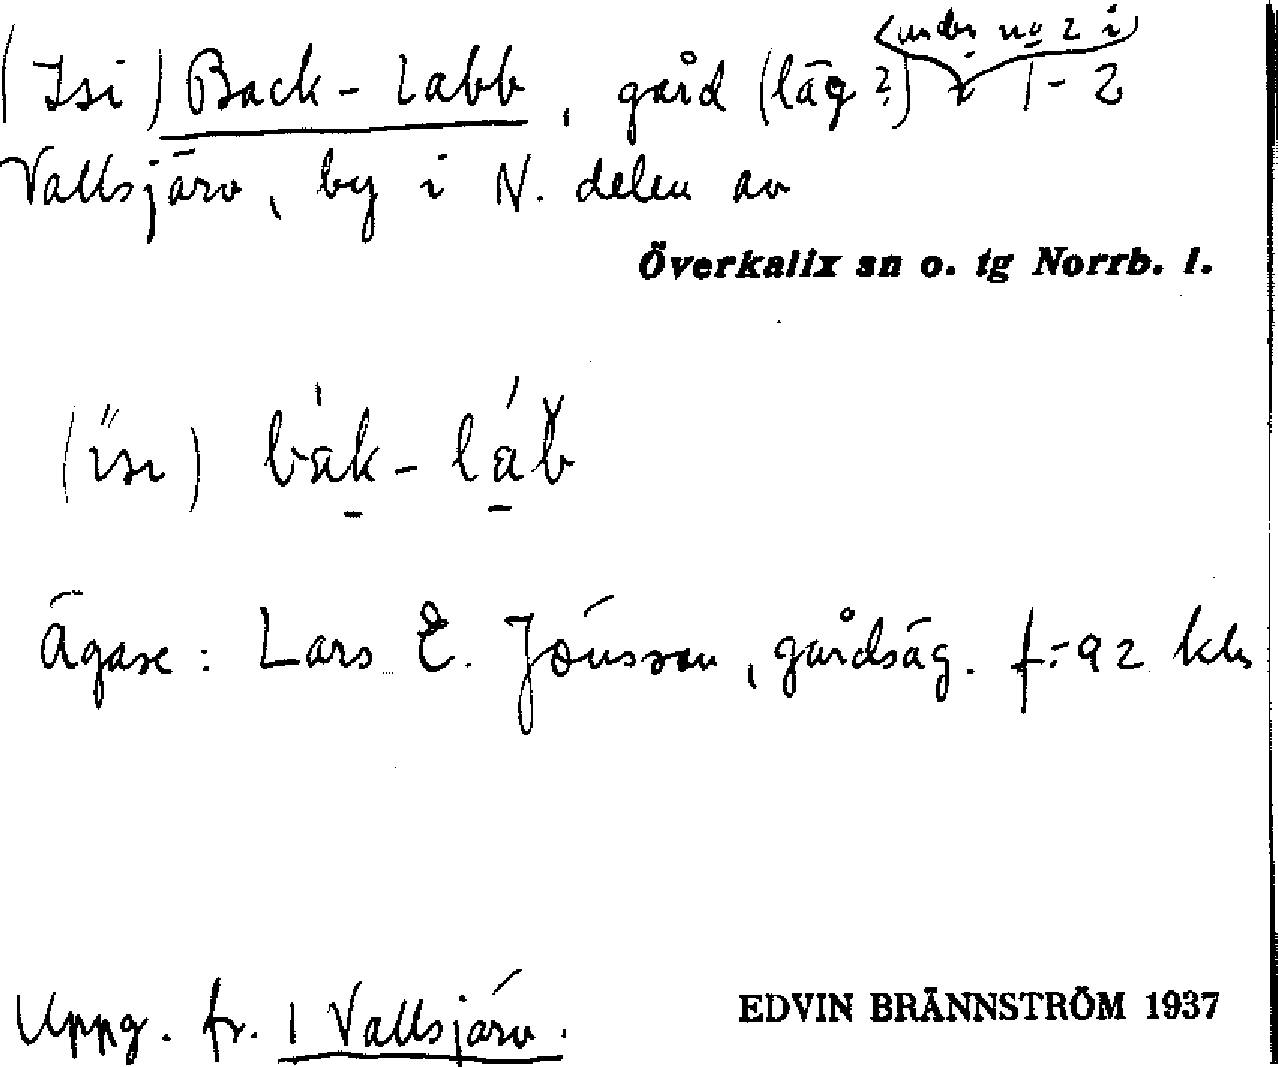 (under no 2 i)
(Isi) Back-Labb, gård (läg?) 1-2
Vallsjärv, by i N. delen av
Överkalix sn o. tg Norrb. l.
Ägare: Lars E. Jönsson, gårdsäg. f.-92
Uppg. fr. 1 Vallsjärv.
EDVIN BRÄNNSTRÖM 1937